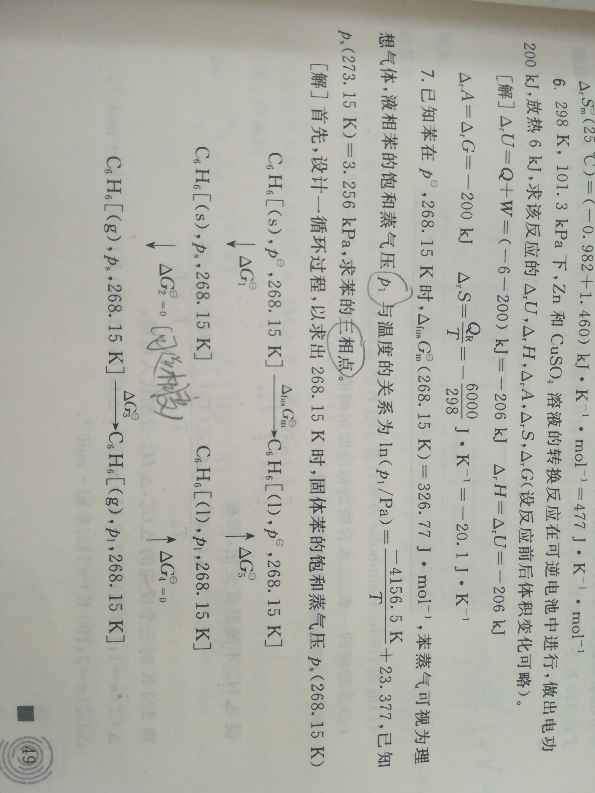 Δ_rS_m^⊖(25 ℃)=(−0.982+1.460) kJ·K⁻¹·mol⁻¹=477 J·K⁻¹·mol⁻¹
6. 298 K, 101.3 kPa 下,Zn 和 CuSO₄ 溶液的转换反应在可逆电池中进行,做出电功
200 kJ,放热 6 kJ,求该反应的 Δ_rU,Δ_rH,Δ_rA,Δ_rS,Δ_rG(设反应前后体积变化可略)。
[解] Δ_rU=Q+W=(−6−200) kJ=−206 kJ Δ_rH=Δ_rU=−206 kJ
Δ_rA=Δ_rG=−200 kJ Δ_rS=Q_R/T=−6000/298 J·K⁻¹=−20.1 J·K⁻¹
7. 已知苯在 p^⊖,268.15 K 时,Δ_fusG_m^⊖(268.15 K)=326.77 J·mol⁻¹,苯蒸气可视为理
想气体,液相苯的饱和蒸气压 p_l 与温度的关系为 ln(p_l/Pa)=−4156.5 K/T+23.377,已知
p_s(273.15 K)=3.256 kPa,求苯的三相点。
[解] 首先,设计一循环过程,以求出 268.15 K 时,固体苯的饱和蒸气压 p_s(268.15 K)
C₆H₆[(s),p^⊖,268.15 K] Δ_fusG_m^⊖→ C₆H₆[(l),p^⊖,268.15 K]
↓ΔG₁^⊖ ↑ΔG₅^⊖
C₆H₆[(s),p_s,268.15 K] C₆H₆[(l),p_l,268.15 K]
↓ΔG₂^⊖=0 ↑ΔG₄^⊖=0
C₆H₆[(g),p_s,268.15 K] ΔG₃^⊖→ C₆H₆[(g),p_l,268.15 K]
49